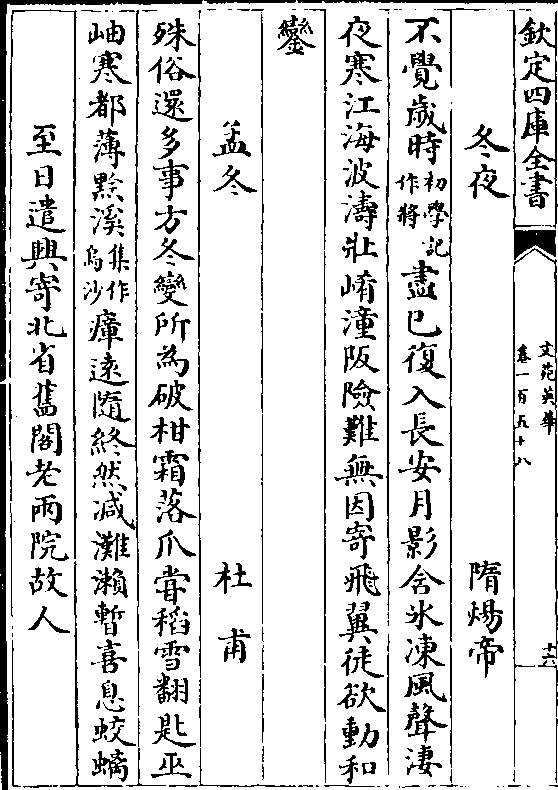 欽定四庫全書
文苑英華
卷一百五十八
十六
冬夜 隋煬帝
不覺歲時初學記作將盡已復入長安月影含氷凍風聲淒
夜寒江海波濤壯崤潼阪險難無因寄飛翼徒欲動和
鑾
孟冬 杜甫
殊俗還多事方冬變所為破柑霜落爪甞稻雪翻匙巫
岫寒都薄黔溪集作烏沙瘴遠隨終然减灘瀨暫喜息蛟螭
至日遣興寄北省舊閣老兩院故人